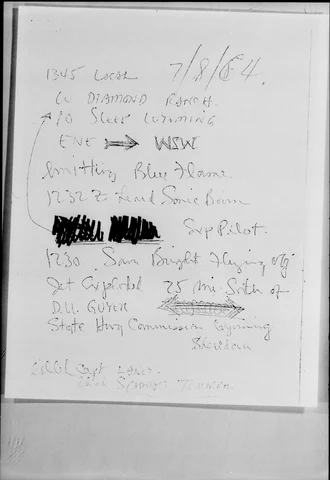 1345 LOCAL 7/8/64.
W DIAMOND RANCH.
10 SLEEP WYOMING
ENE → WSW
Emitting Blue Flame
1232 Z heard Sonic Boom
Exp Pilot.
1230 Saw Bright Flying obj
Jet Exploded 25 Mi. South of
D.U. GUYER
State Hwy Commission Wyoming
Sheridan
Capt